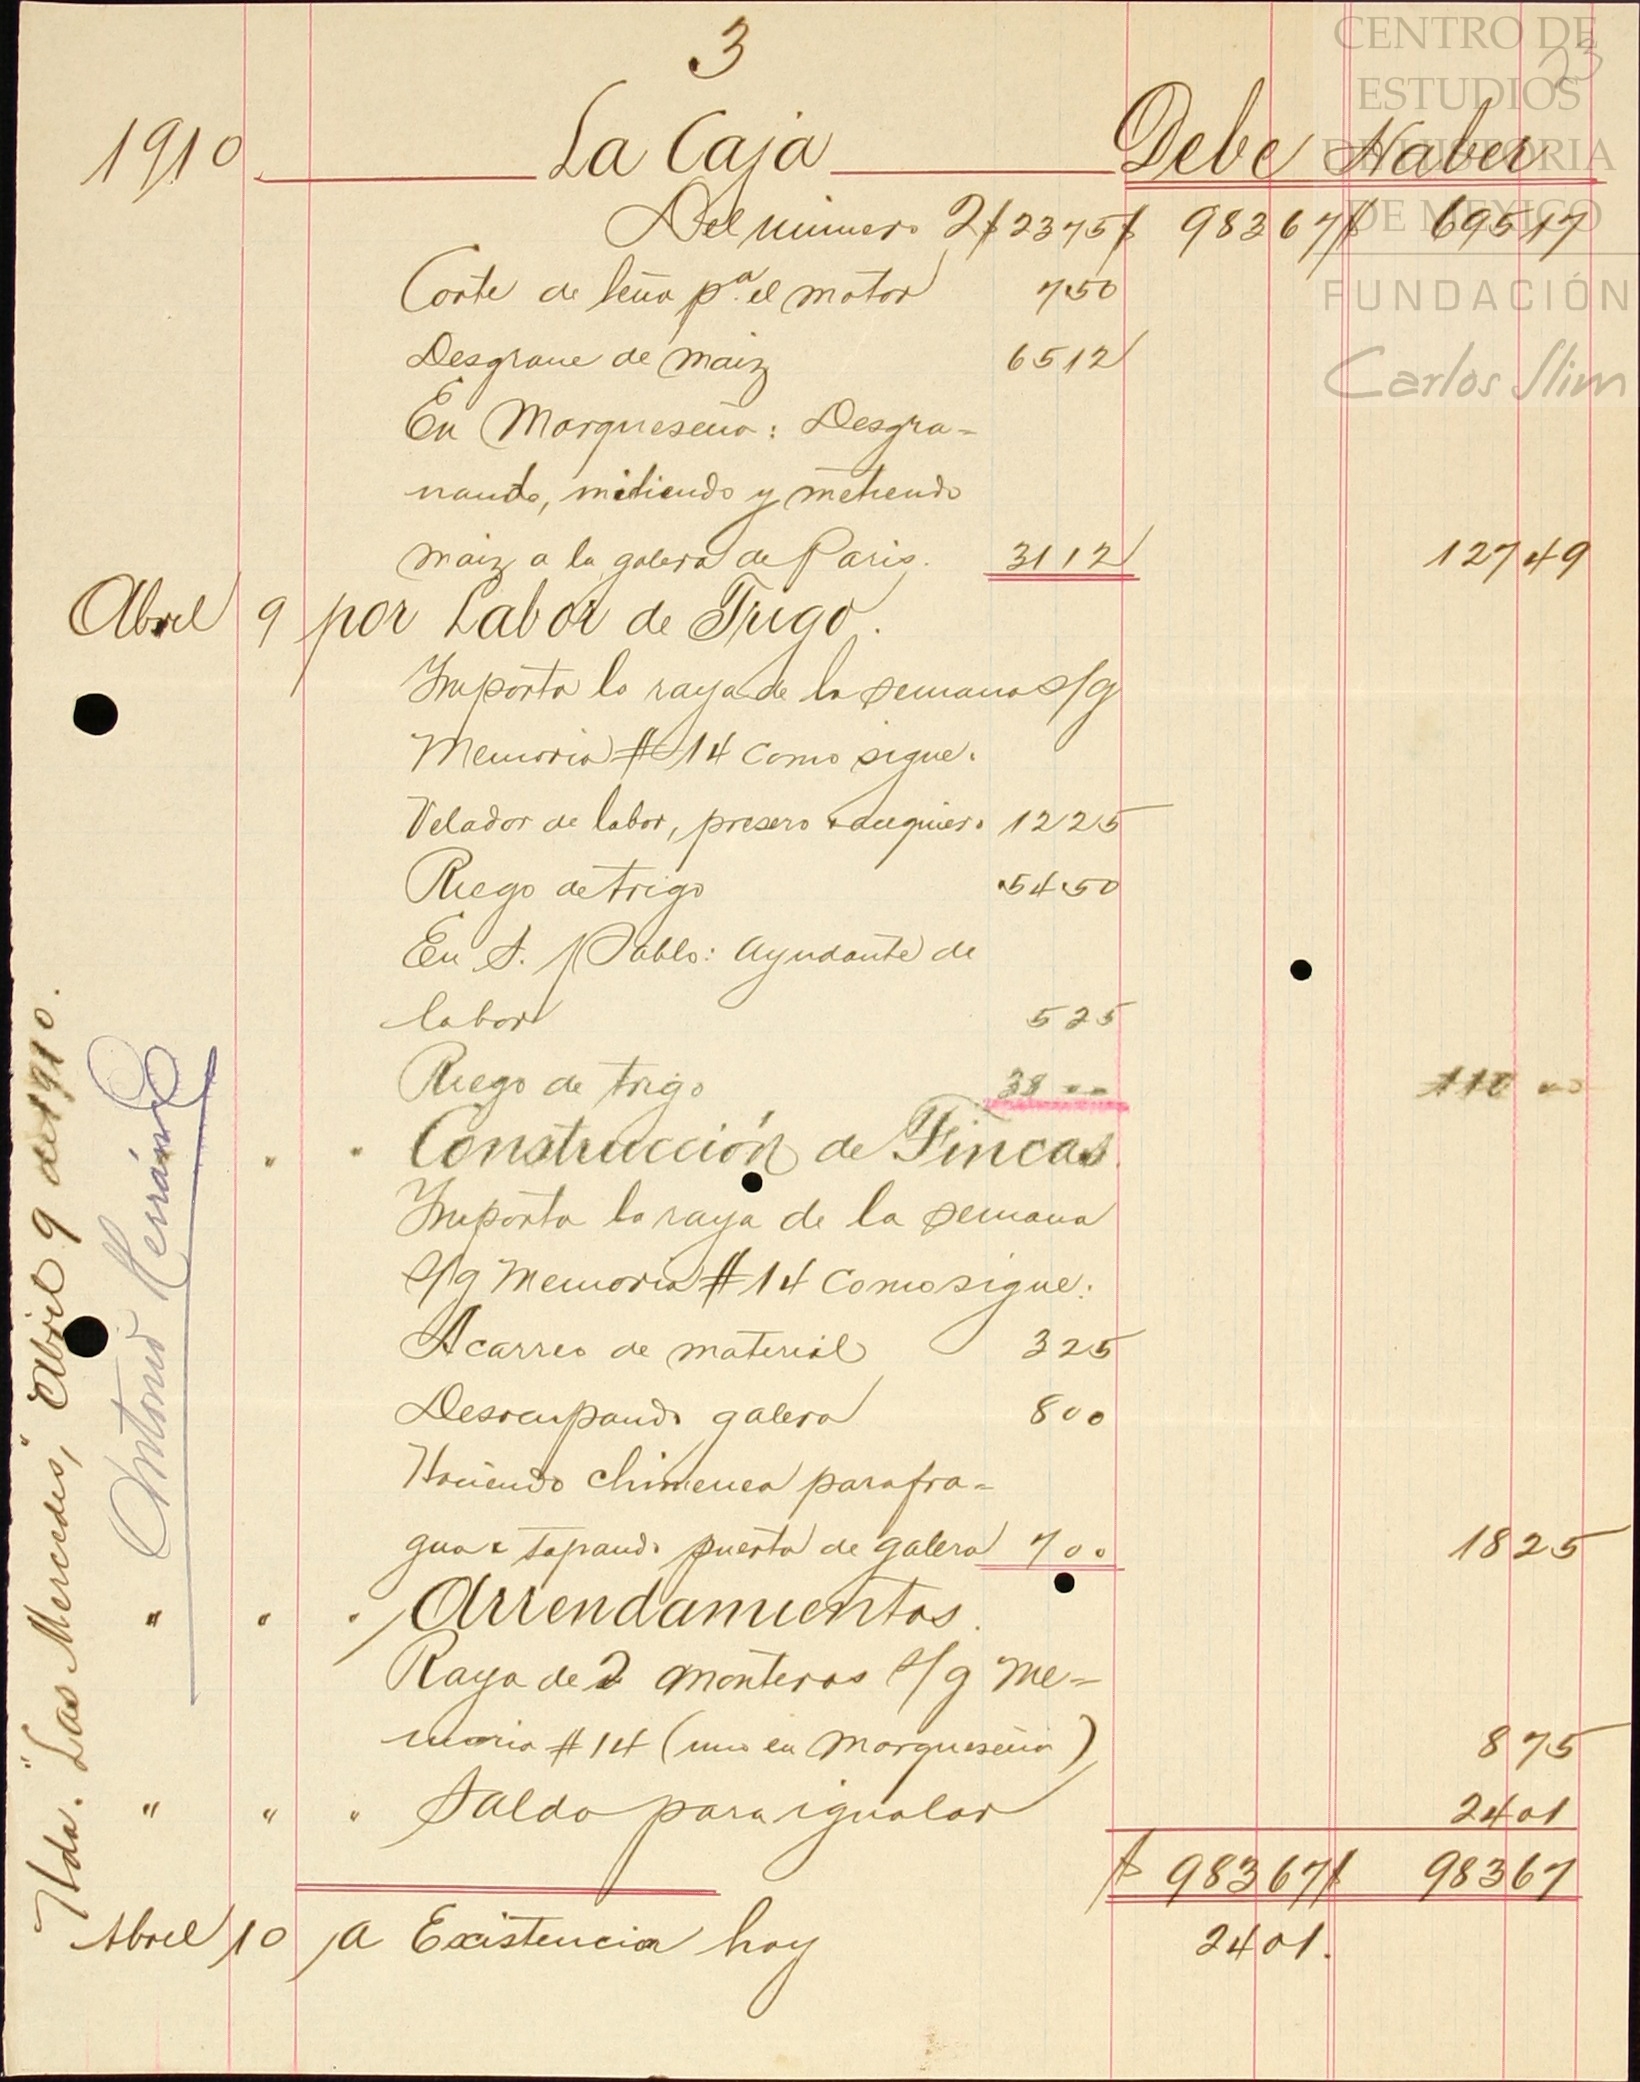 3
23
1910 La Caja Debe Haber
Del número 2 $ 23 75 $ 983 67 $ 695 17
Corte de leña pª el motor 7 50
Desgrane de maiz 65 12
En Marqueseña: Desgra=
nando, midiendo y metiendo
maiz a la galera de Paris. 31 12 127 49
Abril 9 por Labor de Trigo.
Importa la raya de la semana s/g
Memoria # 14 como sigue.
Velador de labor, presero 12 25
Riego de trigo 54 50
En S. Pablo: Ayudante de
labor 5 25
Riego de trigo 38 " " 110 00
" " Construcción de Fincas.
Importa la raya de la semana
s/g Memoria # 14 como sigue:
Acarreo de material 3 25
Desocupando galera 8 00
Haciendo chimenea para fra=
gua y tapando puerta de galera 7 00 18 25
" " " Arrendamientos.
Raya de 2 monteros s/g Me=
moria # 14 (uno en Marqueseña) 8 75
" " " Saldo para igualar 24 01
$ 983 67 $ 983 67
Abril 10 a Existencia hoy 24 01.
Hda. "Las Mercedes," Abril 9 de 1910.
Antonio Herrández
CENTRO DE
ESTUDIOS
DE HISTORIA
DE MÉXICO
FUNDACIÓN
Carlos Slim